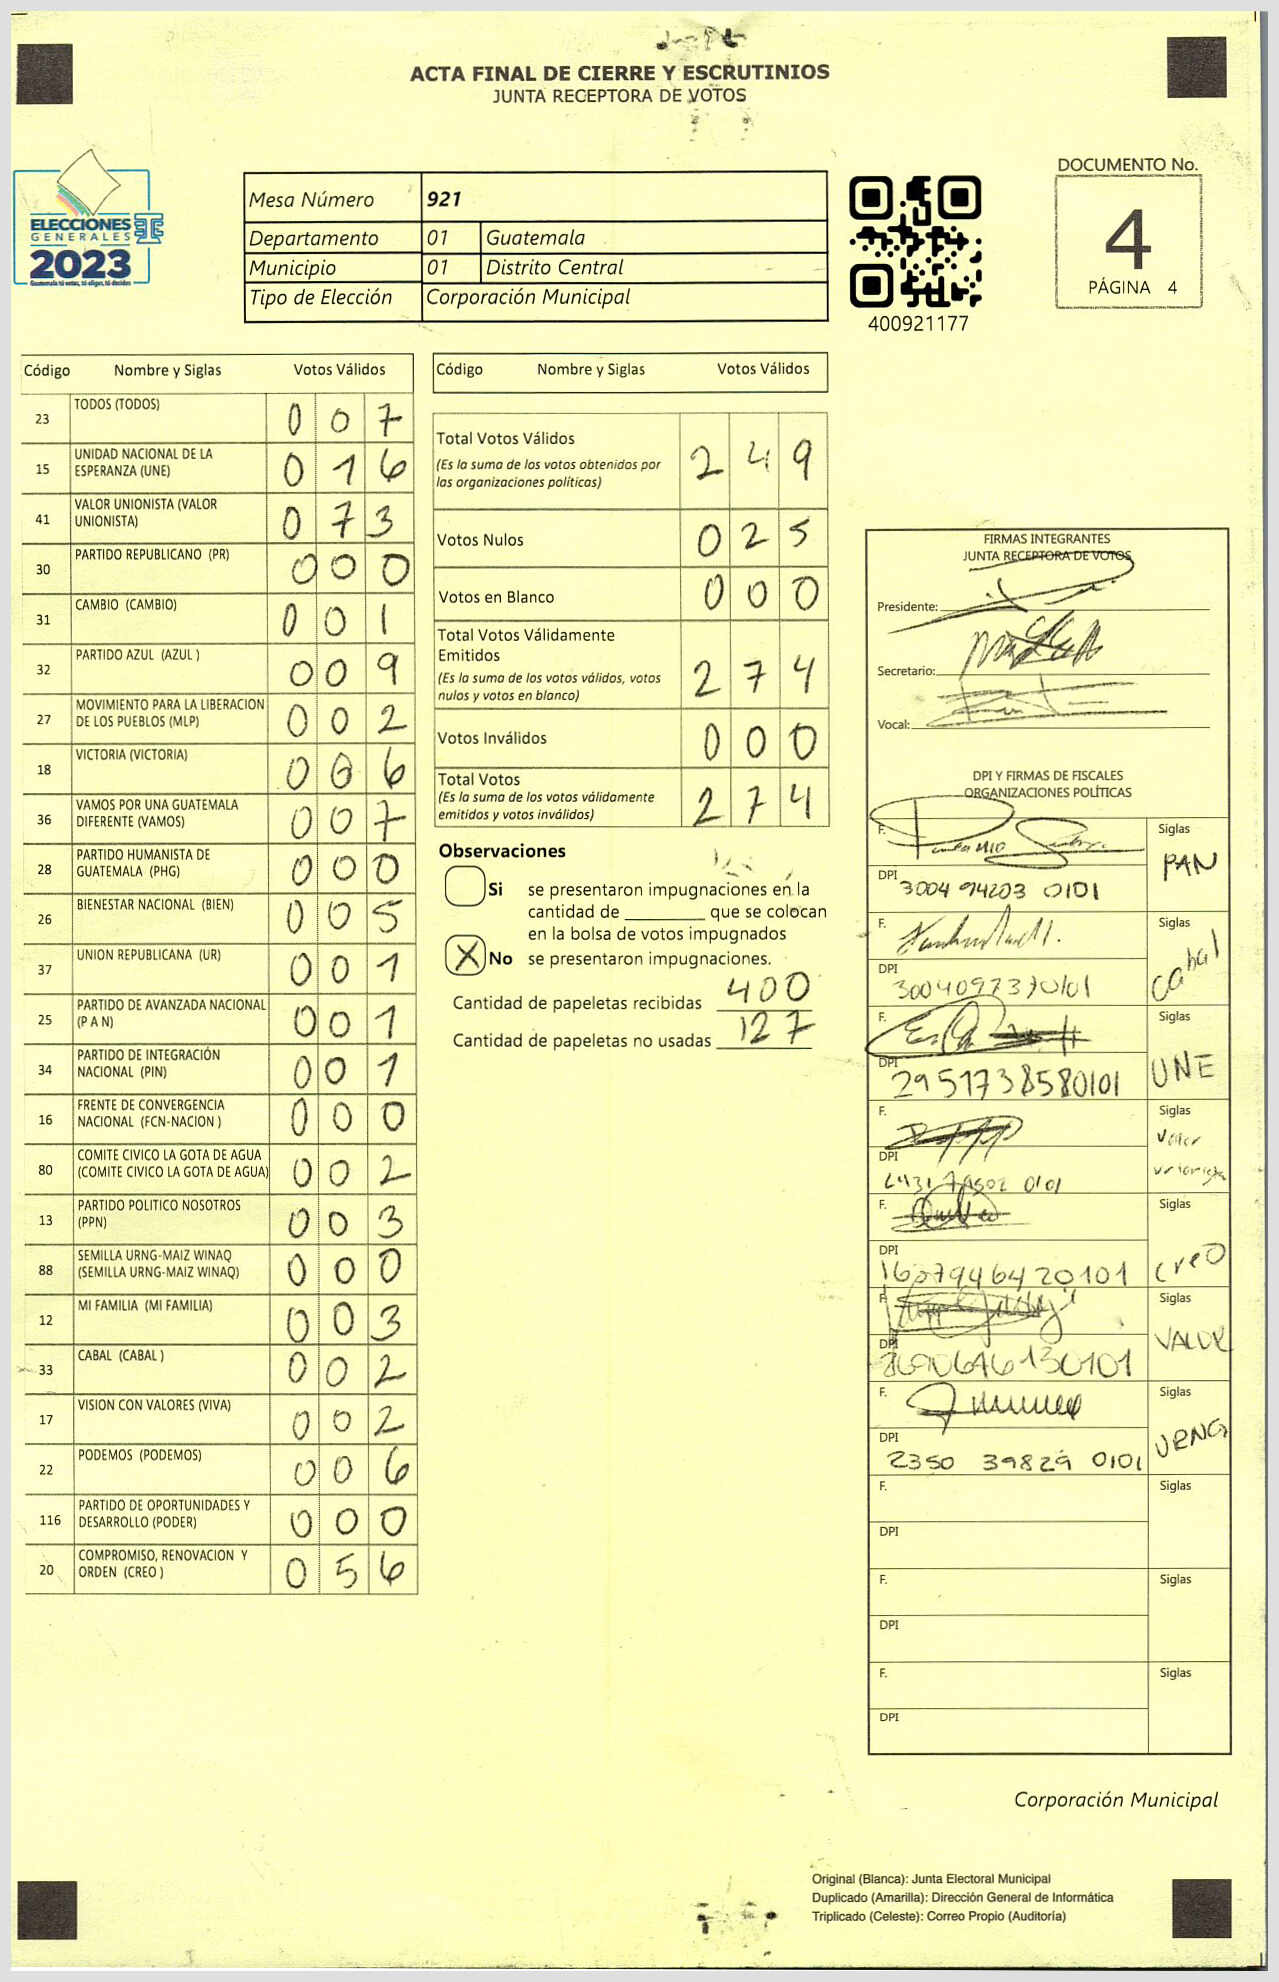 ACTA FINAL DE CIERRE Y ESCRUTINIOS
JUNTA RECEPTORA DE VOTOS
ELECCIONES
GENERALES
2023
Guatemala tú votas, tú eliges, tú decides
Mesa Número 921
Departamento 01 Guatemala
Municipio 01 Distrito Central
Tipo de Elección Corporación Municipal
400921177
DOCUMENTO No.
4
PÁGINA 4
Código Nombre y Siglas Votos Válidos
23 TODOS (TODOS) 0 0 7
15 UNIDAD NACIONAL DE LA
ESPERANZA (UNE) 0 1 6
41 VALOR UNIONISTA (VALOR
UNIONISTA) 0 7 3
30 PARTIDO REPUBLICANO (PR) 0 0 0
31 CAMBIO (CAMBIO) 0 0 1
32 PARTIDO AZUL (AZUL ) 0 0 9
27 MOVIMIENTO PARA LA LIBERACION
DE LOS PUEBLOS (MLP) 0 0 2
18 VICTORIA (VICTORIA) 0 0 6
36 VAMOS POR UNA GUATEMALA
DIFERENTE (VAMOS) 0 0 7
28 PARTIDO HUMANISTA DE
GUATEMALA (PHG) 0 0 0
26 BIENESTAR NACIONAL (BIEN) 0 0 5
37 UNION REPUBLICANA (UR) 0 0 1
25 PARTIDO DE AVANZADA NACIONAL
(P A N) 0 0 1
34 PARTIDO DE INTEGRACIÓN
NACIONAL (PIN) 0 0 1
16 FRENTE DE CONVERGENCIA
NACIONAL (FCN-NACION ) 0 0 0
80 COMITE CIVICO LA GOTA DE AGUA
(COMITE CIVICO LA GOTA DE AGUA) 0 0 2
13 PARTIDO POLITICO NOSOTROS
(PPN) 0 0 3
88 SEMILLA URNG-MAIZ WINAQ
(SEMILLA URNG-MAIZ WINAQ) 0 0 0
12 MI FAMILIA (MI FAMILIA) 0 0 3
33 CABAL (CABAL ) 0 0 2
17 VISION CON VALORES (VIVA) 0 0 2
22 PODEMOS (PODEMOS) 0 0 6
116 PARTIDO DE OPORTUNIDADES Y
DESARROLLO (PODER) 0 0 0
20 COMPROMISO, RENOVACION Y
ORDEN (CREO ) 0 5 6
Código Nombre y Siglas Votos Válidos
Total Votos Válidos 2 4 9
(Es la suma de los votos obtenidos por
las organizaciones políticas)
Votos Nulos 0 2 5
Votos en Blanco 0 0 0
Total Votos Válidamente
Emitidos 2 7 4
(Es la suma de los votos válidos, votos
nulos y votos en blanco)
Votos Inválidos 0 0 0
Total Votos 2 7 4
(Es la suma de los votos válidamente
emitidos y votos inválidos)
Observaciones
Si se presentaron impugnaciones en la
cantidad de ________ que se colocan
en la bolsa de votos impugnados
X No se presentaron impugnaciones.
Cantidad de papeletas recibidas 400
Cantidad de papeletas no usadas 127
FIRMAS INTEGRANTES
JUNTA RECEPTORA DE VOTOS
Presidente:
Secretario:
Vocal:
DPI Y FIRMAS DE FISCALES
ORGANIZACIONES POLÍTICAS
F. Siglas
PAN
DPI
3004 94203 0101
F. Siglas
Cabal
DPI
3004097370101
F. Siglas
UNE
DPI
2951738580101
F. Siglas
Valor
DPI
F. Siglas
CREO
DPI
1607946420101
F. Siglas
VALOR
DPI
F. Siglas
URNG
DPI
2350 39829 0101
F. Siglas
DPI
F. Siglas
DPI
F. Siglas
DPI
Corporación Municipal
Original (Blanca): Junta Electoral Municipal
Duplicado (Amarilla): Dirección General de Informática
Triplicado (Celeste): Correo Propio (Auditoría)